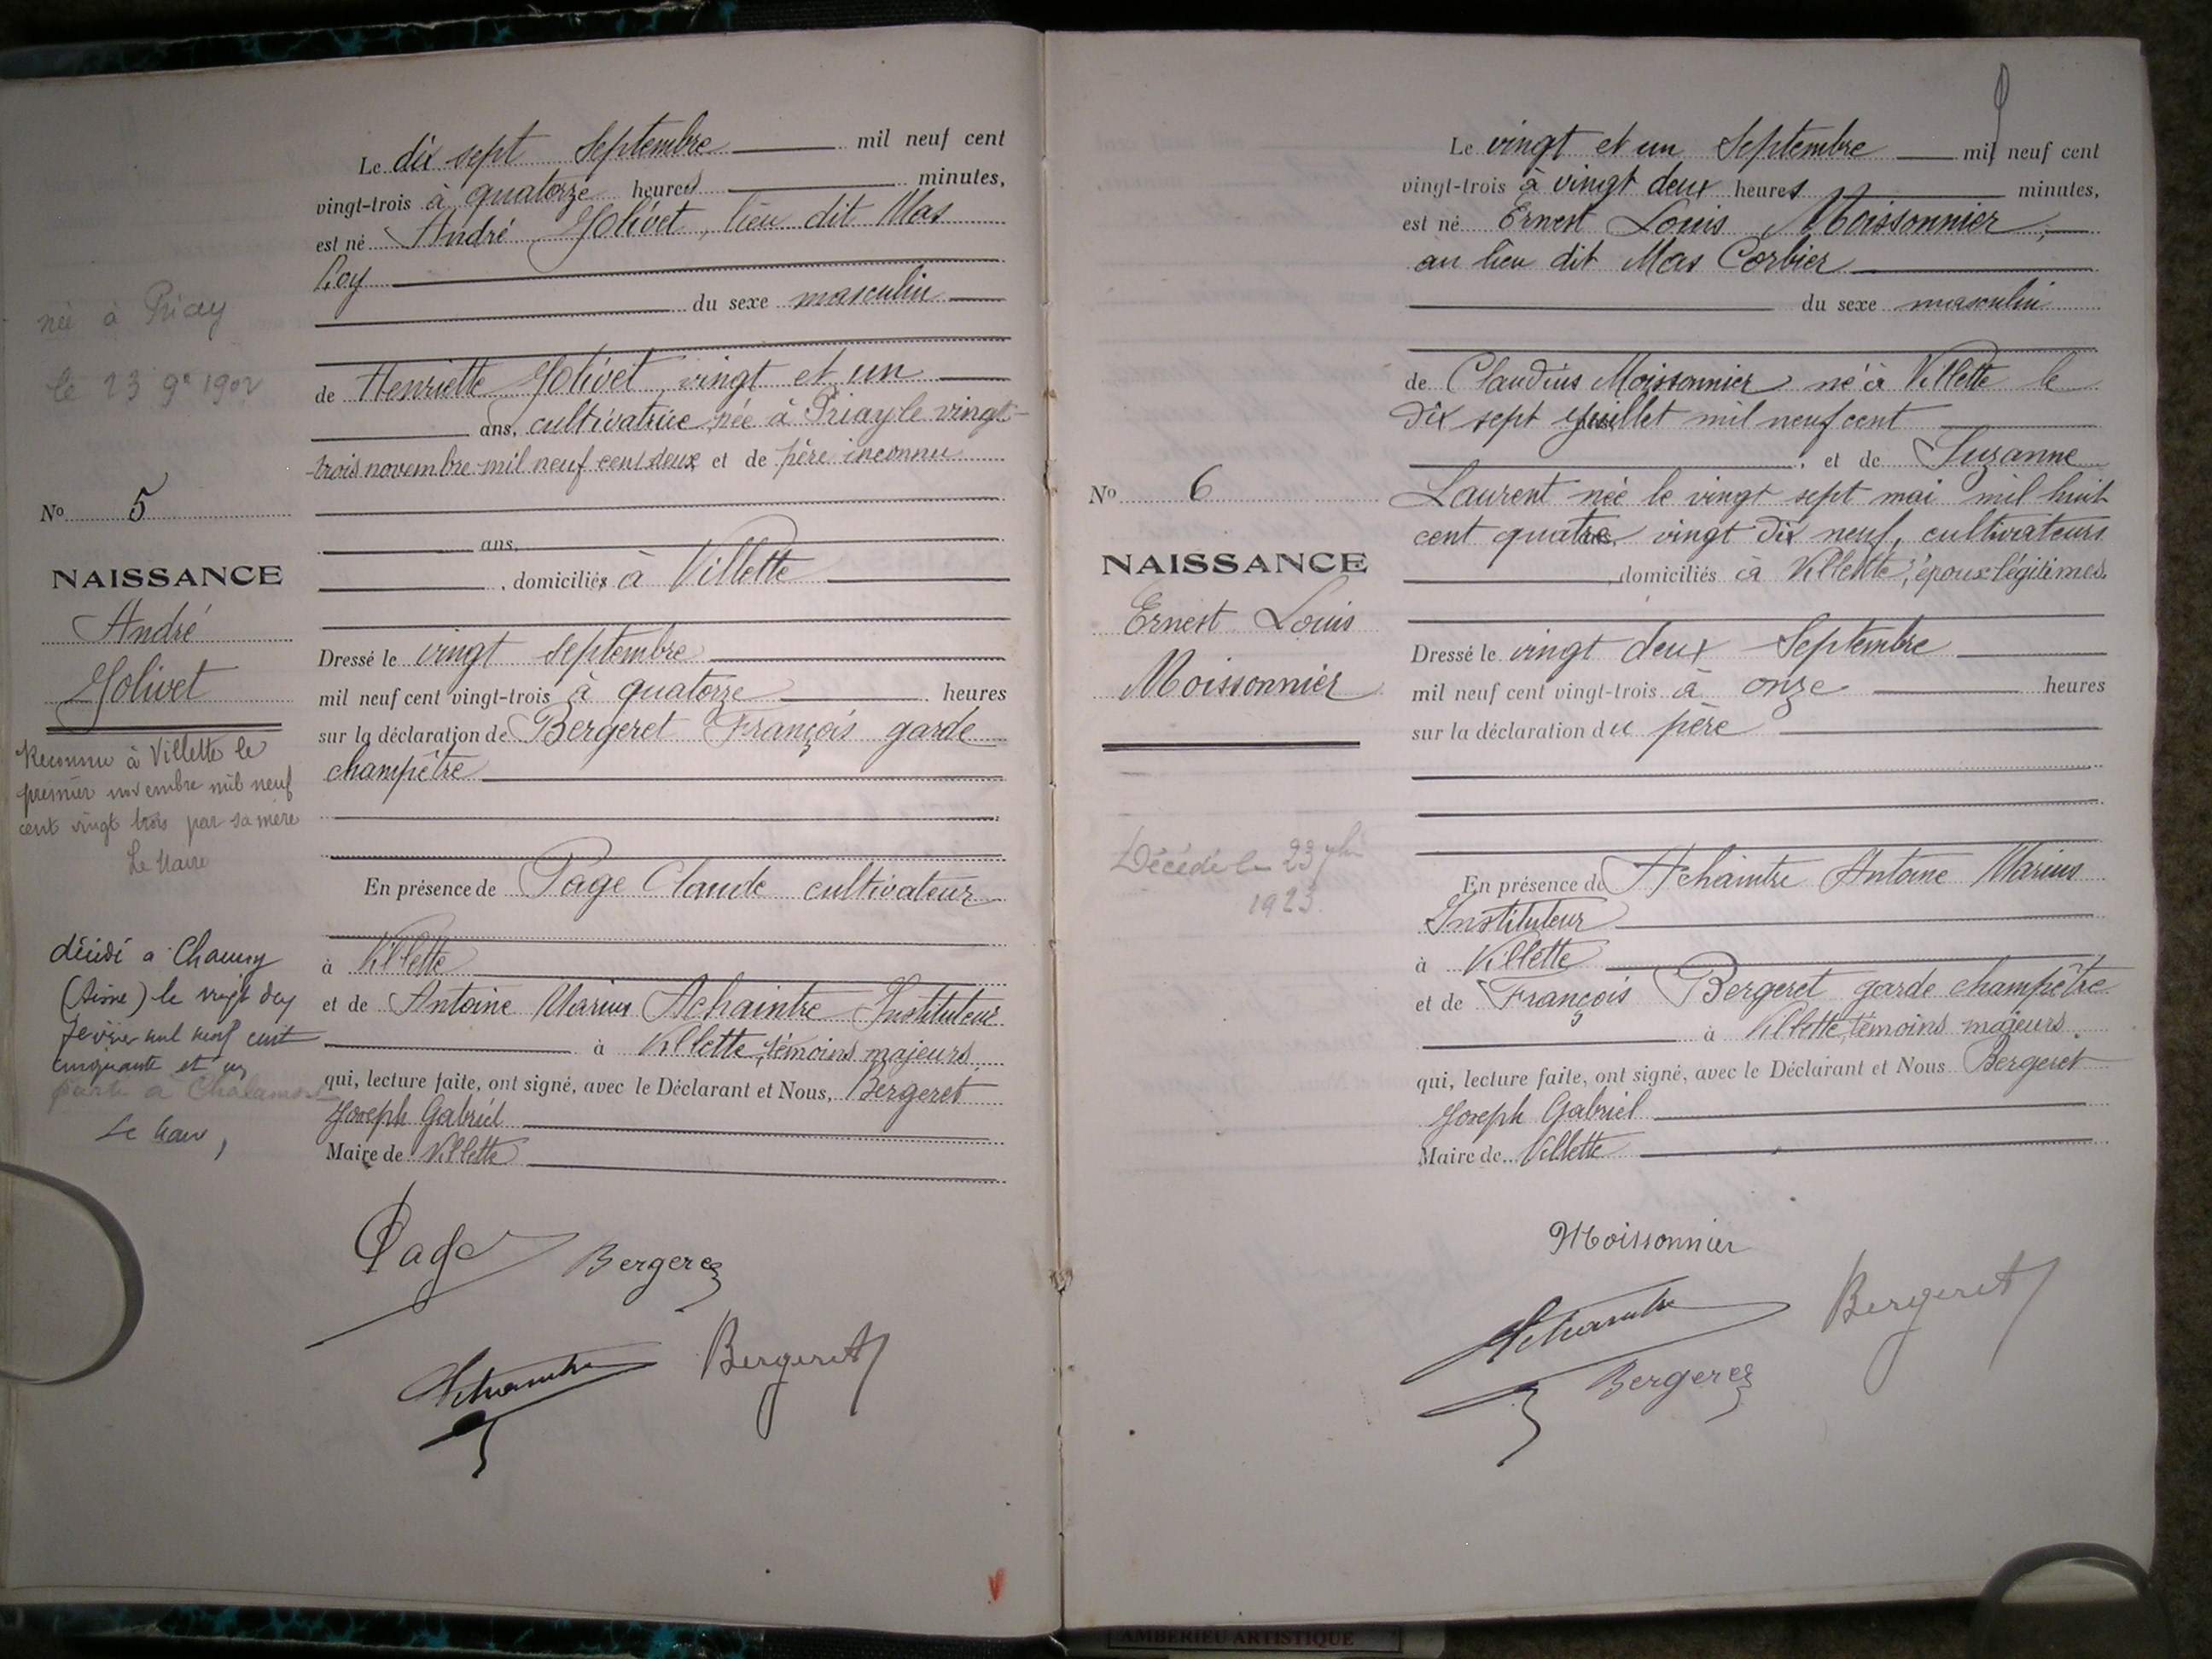 née à Priay
le 23 9e 1902
No 5
NAISSANCE
André
Jolivet
Reconnu à Villette le
premier novembre mil neuf
cent vingt trois par sa mère
Le Maire
décédé a Chauny
(Aisne) le vingt
fevrier mil neuf cent
cinquante et un
Le Maire,
Le dix sept Septembre mil neuf cent
vingt-trois à quatorze heures minutes,
est né André Jolivet, lieu dit Mas
Roy
du sexe masculin
de Henriette Jolivet, vingt et un
ans, cultivatrice, née à Priay le vingt-
trois novembre mil neuf cent deux et de père inconnu
ans,
, domiciliés à Villette
Dressé le vingt septembre
mil neuf cent vingt-trois à quatorze heures
sur la déclaration de Bergeret François garde
champêtre
En présence de Page Claude cultivateur
à Villette
et de Antoine Marius Achaintre Instituteur
à Villette, témoins majeurs
qui, lecture faite, ont signé, avec le Déclarant et Nous, Bergeret
Joseph Gabriel
Maire de Villette
Page Bergeret
Achaintre Bergeret
No 6
NAISSANCE
Ernest Louis
Moissonnier
Décédé le 23 7bre
1923
Le vingt et un Septembre mil neuf cent
vingt-trois à vingt deux heures minutes,
est né Ernest Louis Moissonnier,
au lieu dit Mas Corbier
du sexe masculin
de Claudius Moissonnier né à Villette le
dix sept Juillet mil neuf cent
, et de Suzanne
Laurent née le vingt sept mai mil huit
cent quatre vingt dix neuf, cultivateurs
, domiciliés à Villette, époux légitimes.
Dressé le vingt deux Septembre
mil neuf cent vingt-trois à onze heures
sur la déclaration du père
En présence de Achaintre Antoine Marius
Instituteur
à Villette
et de François Bergeret garde champêtre
à Villette, témoins majeurs
qui, lecture faite, ont signé, avec le Déclarant et Nous Bergeret
Joseph Gabriel
Maire de Villette
Moissonnier
Achaintre Bergeret
Bergeret
AMBERIEU ARTISTIQUE